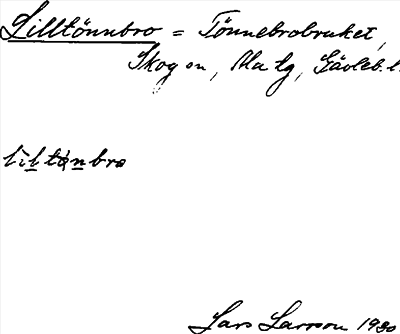 Lilltönnbro = Tönnebrobruket,
Skog sn, Ala tg, Gävleb. l.
liltönbro
Lars Larsson 1930